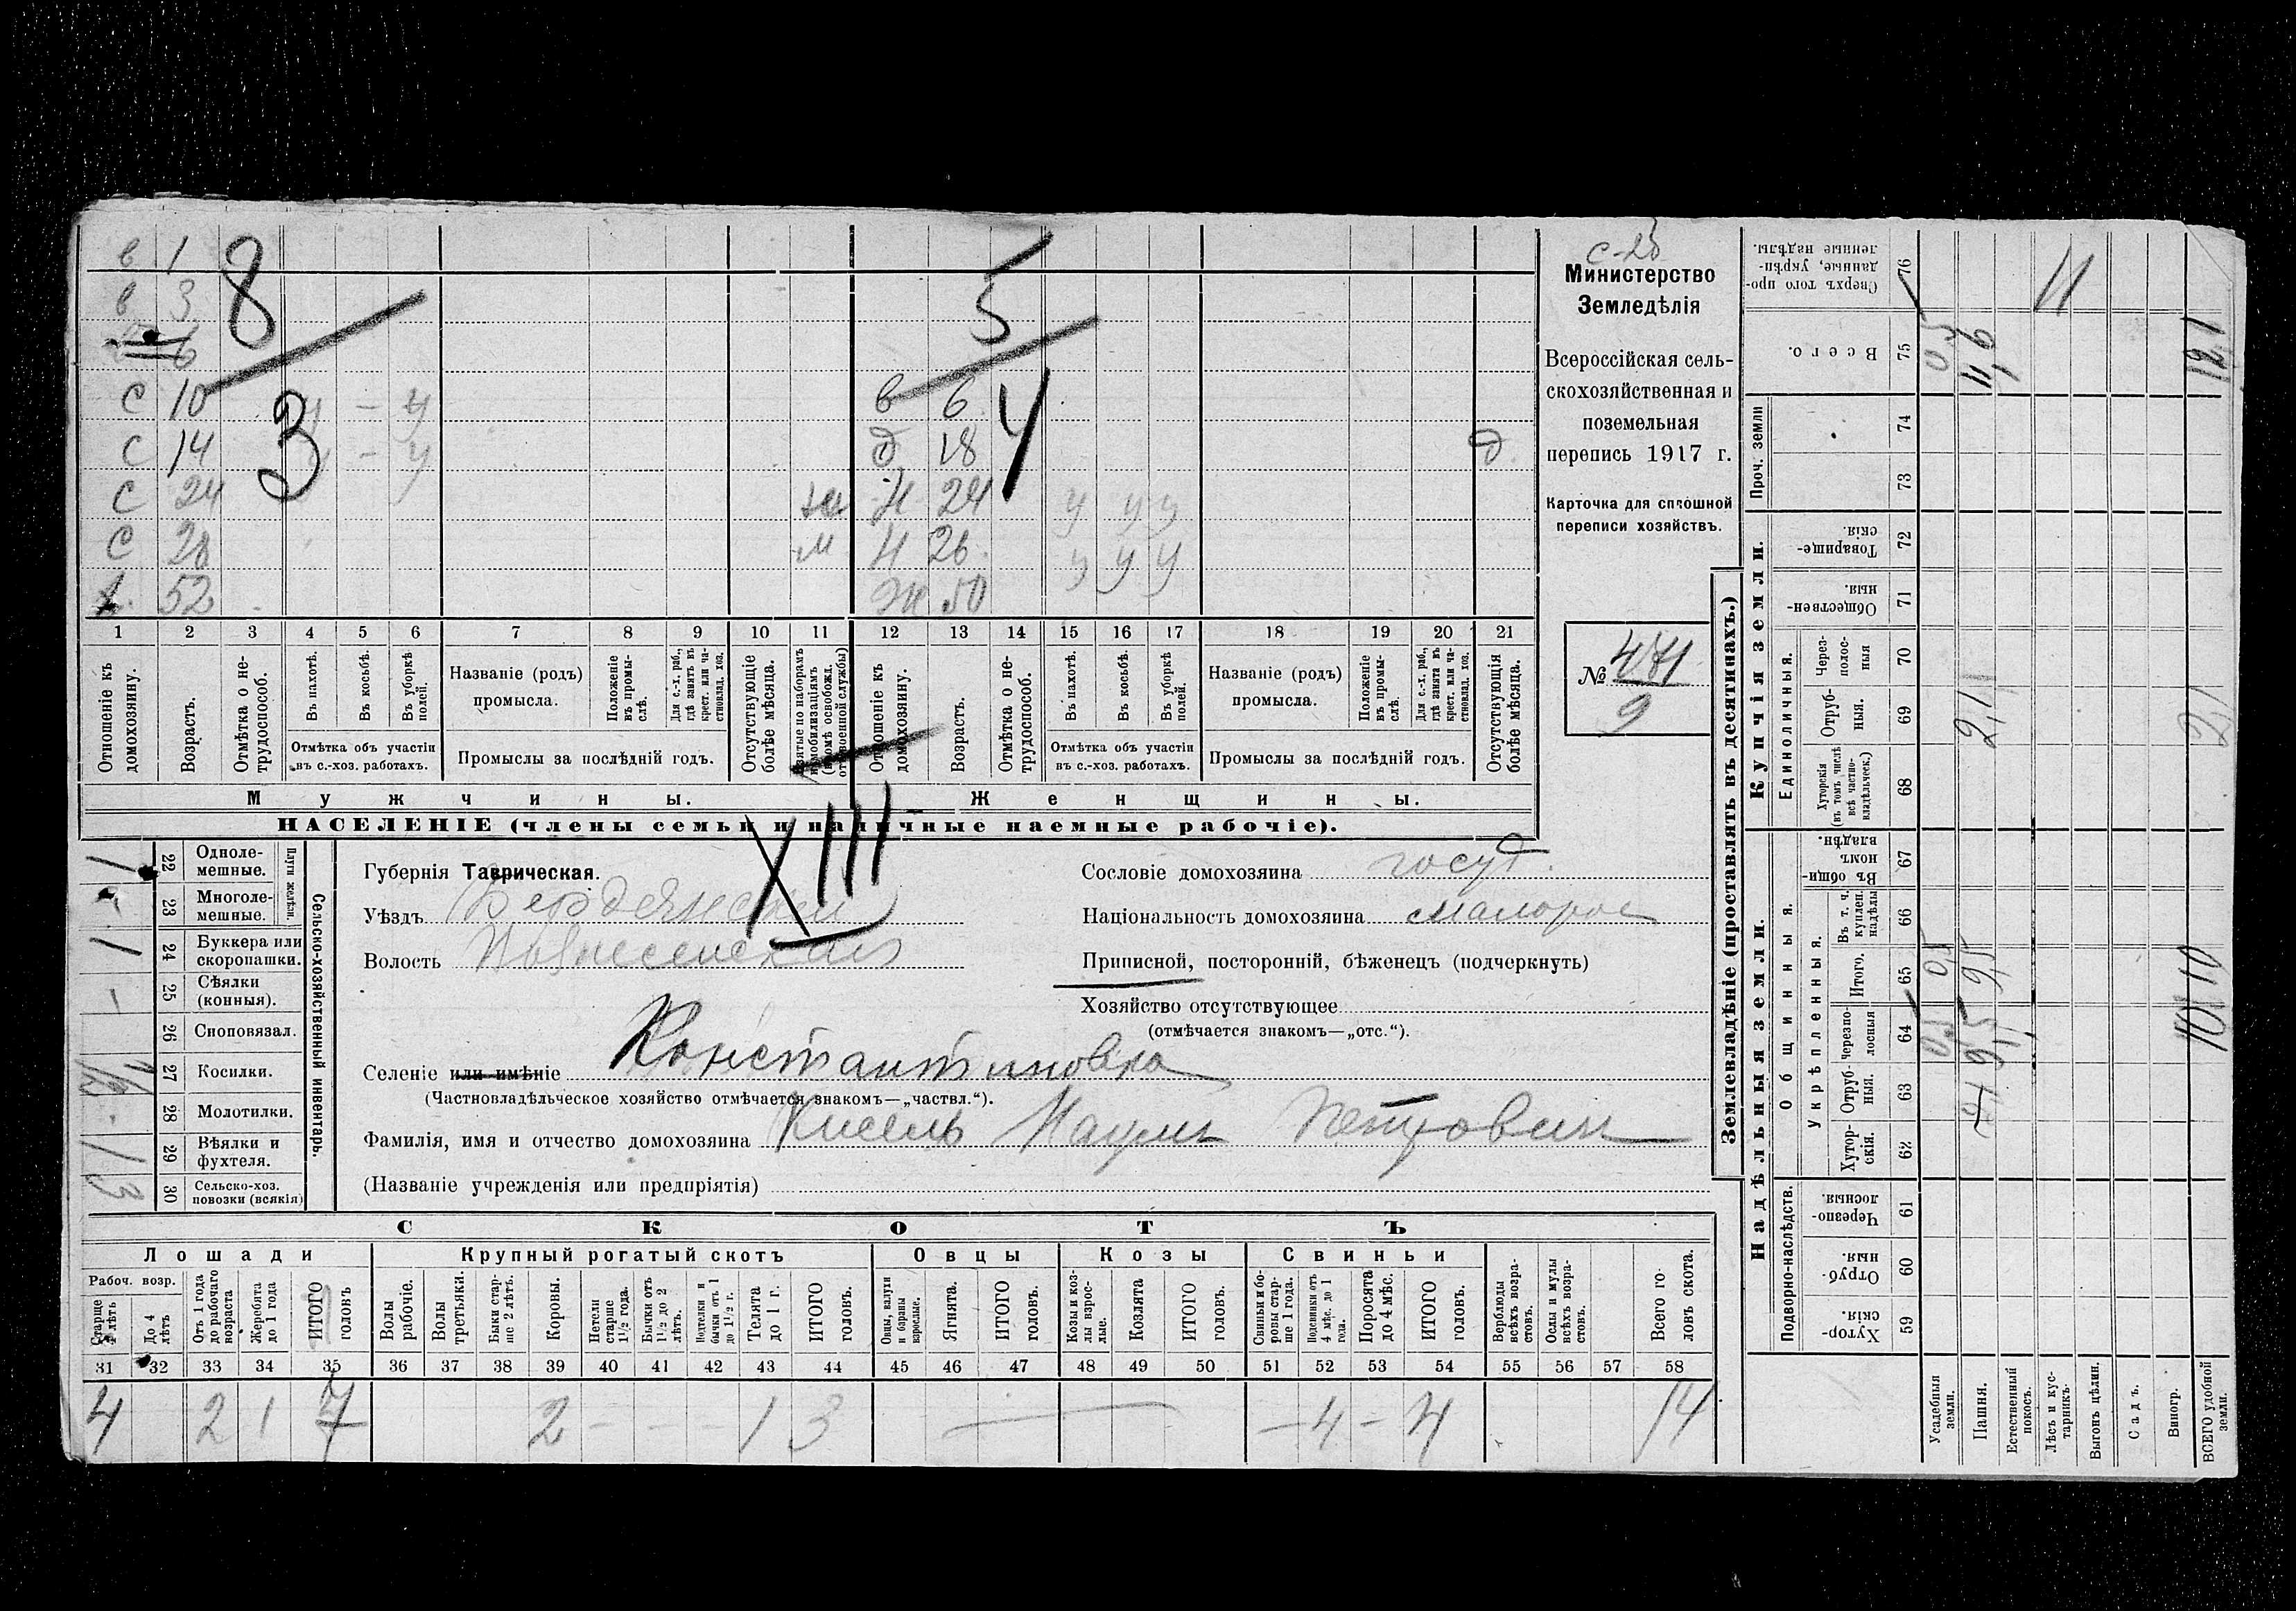 в 1 8 5
в 3
6
С 10 у – у в 6
С 14 3 у – у д 18 4 д
С 24 м Н 24 у у у
С 28 м Н 26 у у у
х. 52 Ж 50
1 2 3 4 5 6 7 8 9 10 11 12 13 14 15 16 17 18 19 20 21
Отношеніе къ домохозяину.
Возрастъ.
Отмѣтка о нетрудоспособ.
Въ пахотѣ.
Въ косьбѣ.
Въ уборкѣ полей.
Отмѣтка объ участіи
въ с.-хоз. работахъ.
Названіе (родъ)
промысла.
Положеніе въ промыслѣ.
Для с.-х. раб., гдѣ занятъ въ крест. или частновлад. хоз.
Промыслы за послѣдній годъ.
Отсутствующіе болѣе мѣсяца.
Взятые по наборамъ и мобилизаціямъ (кромѣ освобожд. отъ военной службы)
Отношеніе къ домохозяину.
Возрастъ.
Отмѣтка о нетрудоспособ.
Въ пахотѣ.
Въ косьбѣ.
Въ уборкѣ полей.
Отмѣтка объ участіи
въ с.-хоз. работахъ.
Названіе (родъ)
промысла.
Положеніе въ промыслѣ.
Для с.-х. раб., гдѣ занята въ крест. или частновлад. хоз.
Промыслы за послѣдній годъ.
Отсутствующія болѣе мѣсяца.
Мужчины. Женщины.
НАСЕЛЕНІЕ (члены семьи и наличные наемные рабочіе).
Министерство
Земледѣлія
Всероссійская сель-
скохозяйственная и
поземельная
перепись 1917 г.
Карточка для сплошной
переписи хозяйствъ.
№ 471
9
XIII
Сельско-хозяйственный инвентарь.
Плуги желѣзн.
1 22 Одноле-
мешные.
- 23 Многоле-
мешные.
1 24 Буккера или
скоропашки.
– 25 Сѣялки
(конныя).
26 Сноповязал.
1/2 27 Косилки.
28 Молотилки.
1 29 Вѣялки и
фухтеля.
3 30 Сельско-хоз.
повозки (всякія)
Губернія Таврическая.
Уѣздъ Бердянскій
Волость Вознесенская
Сословіе домохозяина госуд.
Національность домохозяина малорос
Приписной, посторонній, бѣженецъ (подчеркнуть)
Хозяйство отсутствующее
(отмѣчается знакомъ—„отс.“).
Селеніе или имѣніе Константиновка
(Частновладѣльческое хозяйство отмѣчается знакомъ—„частвл.“).
Фамилія, имя и отчество домохозяина Кисель Наумъ Петрович
(Названіе учрежденія или предпріятія)
СКОТЪ
Лошади Крупный рогатый скотъ Овцы Козы Свиньи
Рабоч. возр.
Старше 4 лѣтъ
До 4 лѣтъ
Отъ 1 года до рабочаго возраста
Жеребята до 1 года
ИТОГО головъ
Волы рабочіе.
Волы третьяки.
Быки старше 2 лѣтъ.
Коровы.
Нетели старше 1½ года.
Бычки отъ 1½ до 2 лѣтъ.
Подтелки и бычки отъ 1 до 1½ г.
Телята до 1 г.
ИТОГО головъ.
Овцы, валухи и бараны взрослые.
Ягнята.
ИТОГО головъ.
Козы и козлы взрослые.
Козлята
ИТОГО головъ.
Свиньи и боровы старше 1 года.
Подсвинки отъ 4 мѣс. до 1 года.
Поросята до 4 мѣс.
ИТОГО головъ.
Верблюды всѣхъ возрастовъ.
Ослы и мулы всѣхъ возрастовъ.
Всего головъ скота.
31 32 33 34 35 36 37 38 39 40 41 42 43 44 45 46 47 48 49 50 51 52 53 54 55 56 57 58
4 2 1 7 2 – – – 1 3 — — – 4 – 4 14
Землевладѣніе (проставлять въ десятинахъ.)
Купчія земли.
Надѣльныя земли.
Сверхъ того проданные, укрѣпленные надѣлы. 76 11
Всего. 75 0,5 11,6 12,1
Проч. земли
74
73
Товарищескія 72
Общественныя. 71
Единоличныя.
Черезполосныя 70
Отрубныя. 69 2,1 2,1
Хуторскія (въ томъ числѣ всѣ частновладѣльческ.) 68
Общинныя.
Въ общиномъ владѣн. 67
Укрѣпленныя.
Въ т. ч. куплен. надѣлы 66
Итого. 65 0,5 9,5 10
Черезполосныя 64 0,5 9,5 10
Отрубныя. 63
Хуторскія. 62
Подворно-наслѣдств.
Черезполосныя. 61
Отрубныя. 60
Хуторскія 59
Усадебныя земли.
Пашня.
Естественный покосъ.
Лѣсъ и кустарникъ.
Выгонъ цѣлин.
Садъ.
Виногр.
ВСЕГО удобной земли.